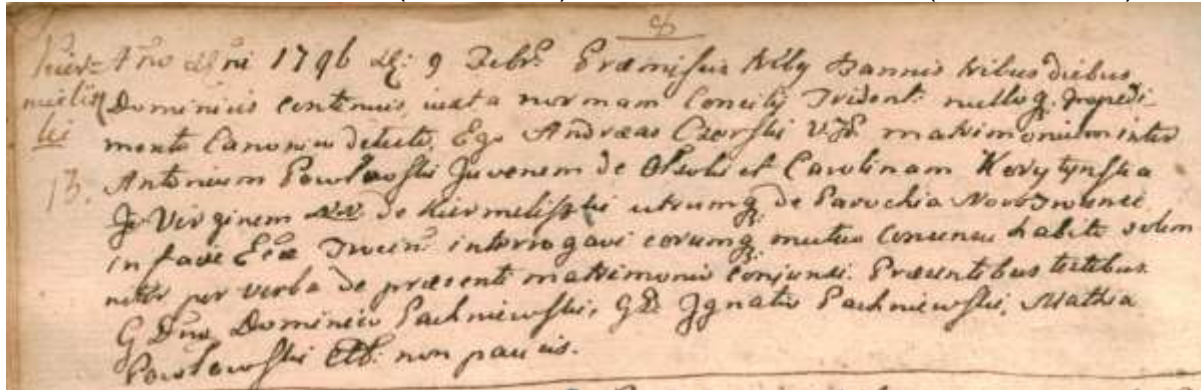 Kier= Año Dñi 1796 d: 9 Febr. Præmissis tribg Bannis tribus diebus
melisz Dominicis continuis, iuxta normam Concilij Trident: nulloq. impedi
ki mento Canonico detecto, Ego Andræas Czerski matrimonium inter
13. Antonium Pawłowski Juvenem de et Carolinam Korytynska
Virginem de Kiermeliszki utrumq. de Parochia
in facie Ecæ interrogavi eorumq. mutuo consensu habito solem
niter per verba de præsenti matrimonio conjunxi. Præsentibus testibus
G Dno Dominico Pachniewski, GD. Jgnatio Pachniewski, Mathia
Pawlowski non paucis.